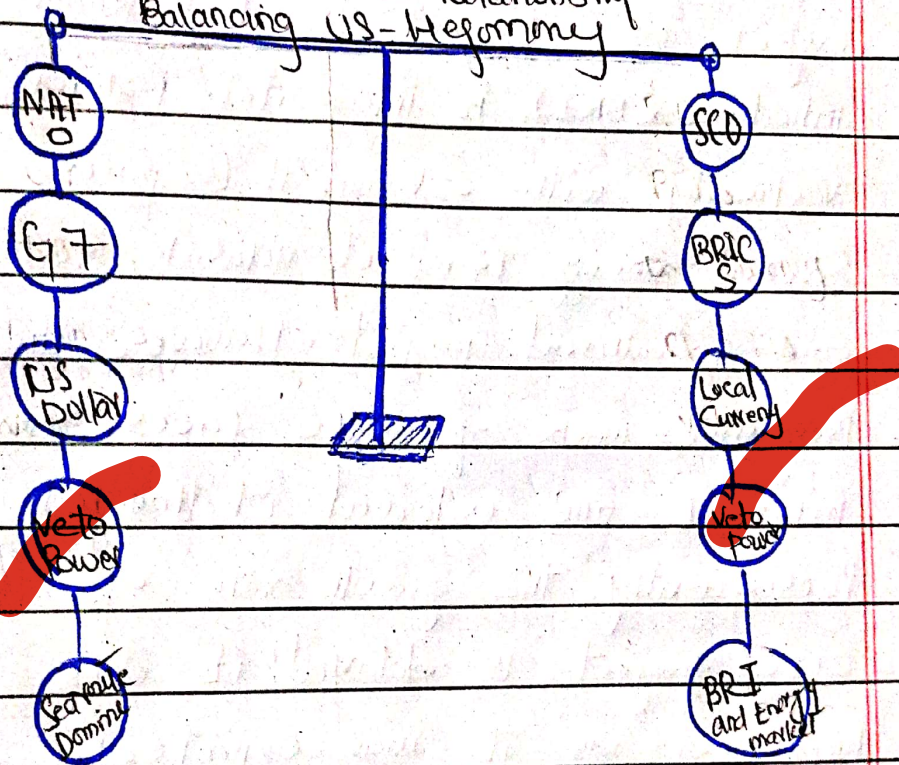 Balancing US-Hegomoney
NAT
O
G7
US
Dollar
Veto
Power
Sea route
Domine
SCO
BRIC
S
Local
Curreny
Veto
power
BRI
and Energy
market